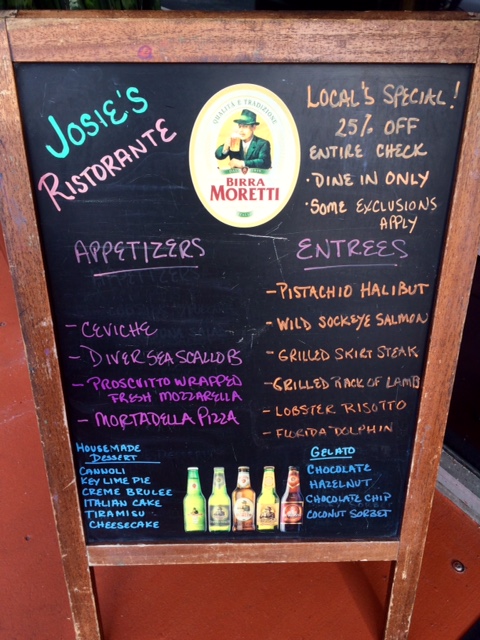 JOSIE'S
RISTORANTE
QUALITÀ E TRADIZIONE
BIRRA
MORETTI
LOCAL'S SPECIAL!
25% OFF
ENTIRE CHECK
· DINE IN ONLY
· SOME EXCLUSIONS
APPLY
APPETIZERS
- CEVICHE
- DIVER SEA SCALLOB
- PROSCUITTO WRAPPED
FRESH MOZZARELLA
- MORTADELLA PIZZA
ENTREES
- PISTACHIO HALIBUT
- WILD SOCKEYE SALMON
- GRILLED SKIRT STEAK
- GRILLED RACK OF LAMB
- LOBSTER RISOTTO
- FLORIDA DOLPHIN
HOUSEMADE
DESSERT
CANNOLI
KEY LIME PIE
CREME BRULEE
ITALIAN CAKE
TIRAMISU
CHEESECAKE
GELATO
CHOCOLATE
HAZELNUT
CHOCOLATE CHIP
COCONUT SORBET